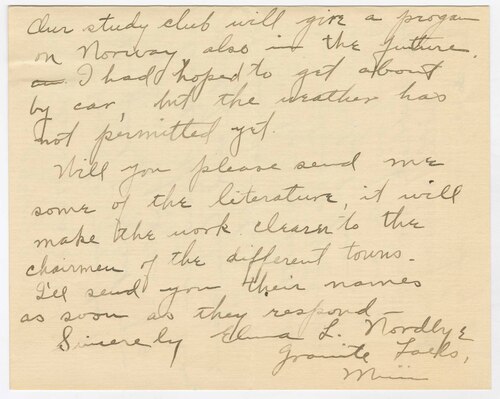 Our study club will give a progam
on Norway also in the future.
I had hoped to get about
by car, but the weather has
not permitted yet.
Will you please send me
some of the literature, it will
make the work clearer to the
chairmen of the different towns.
I'll send you their names
as soon as they respond -
Sincerely Elma L. Nordlye
Granite Falls,
Minn